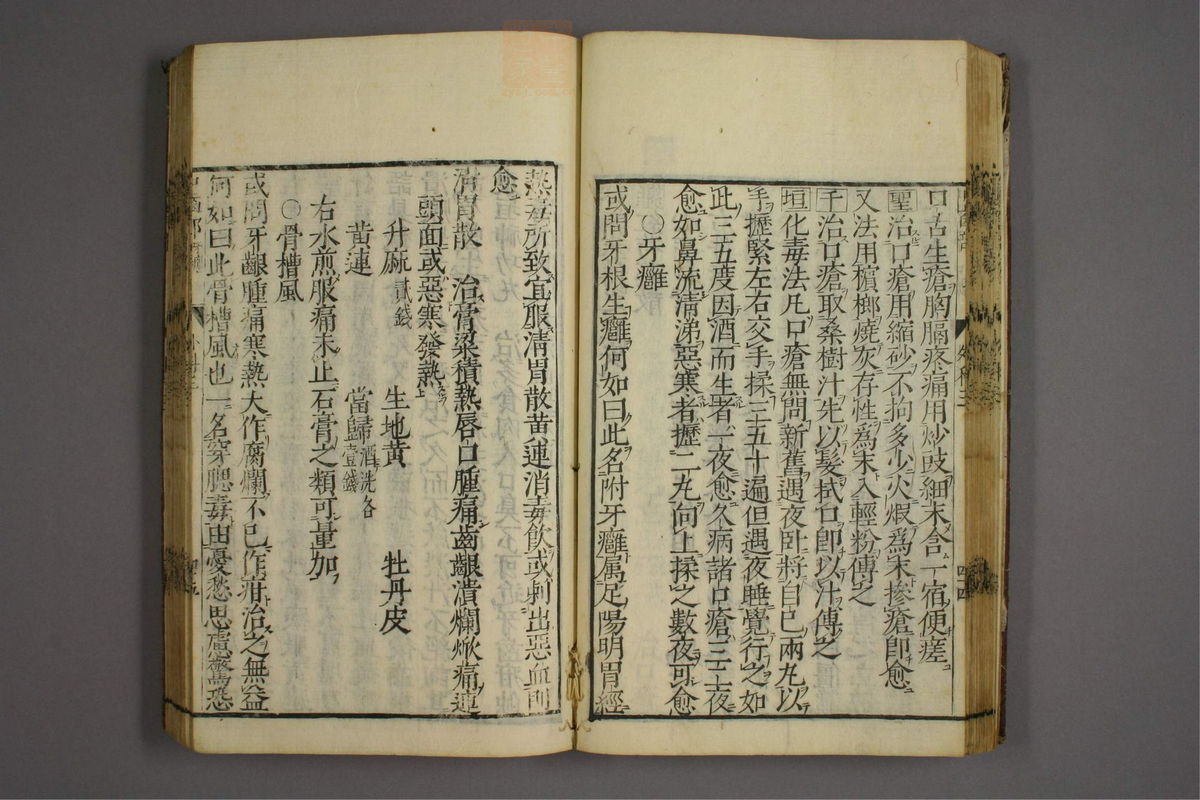 口舌生瘡胸膈疼痛用炒豉細末含一宿便瘥
聖治口瘡用縮砂不拘多少火煅為末摻瘡即愈
又法用檳榔燒灰存性為末入輕粉傅之
千治口瘡取桑樹汁先以髮拭口即以汁傅之
垣化毒法凡口瘡無問新舊遇夜臥將自己兩丸以
手攊緊左右交手揉三五十遍但遇夜睡覺行之如
此三五度因酒而生者一夜愈久病諸口瘡三二夜
愈如鼻流清涕惡寒者攊二丸向上揉之數夜可愈
○牙癰
或問牙根生癰何如曰此名附牙癰属足陽明胃經
熱毒所致宜服清胃散黃連消毒飲或刺出惡血則
愈
清胃散 治膏粱積熱唇口腫痛齒齦潰爛焮痛連
頭面或惡寒發熱
升麻貳錢 生地黃 牡丹皮
黃連 當歸酒洗各壹錢
右水煎服痛未止石膏之類可量加
○骨槽風
或問牙齦腫痛寒熱大作腐爛不已作疳治之無益
何如曰此骨槽風也一名穿腮毒由憂愁思慮驚恐